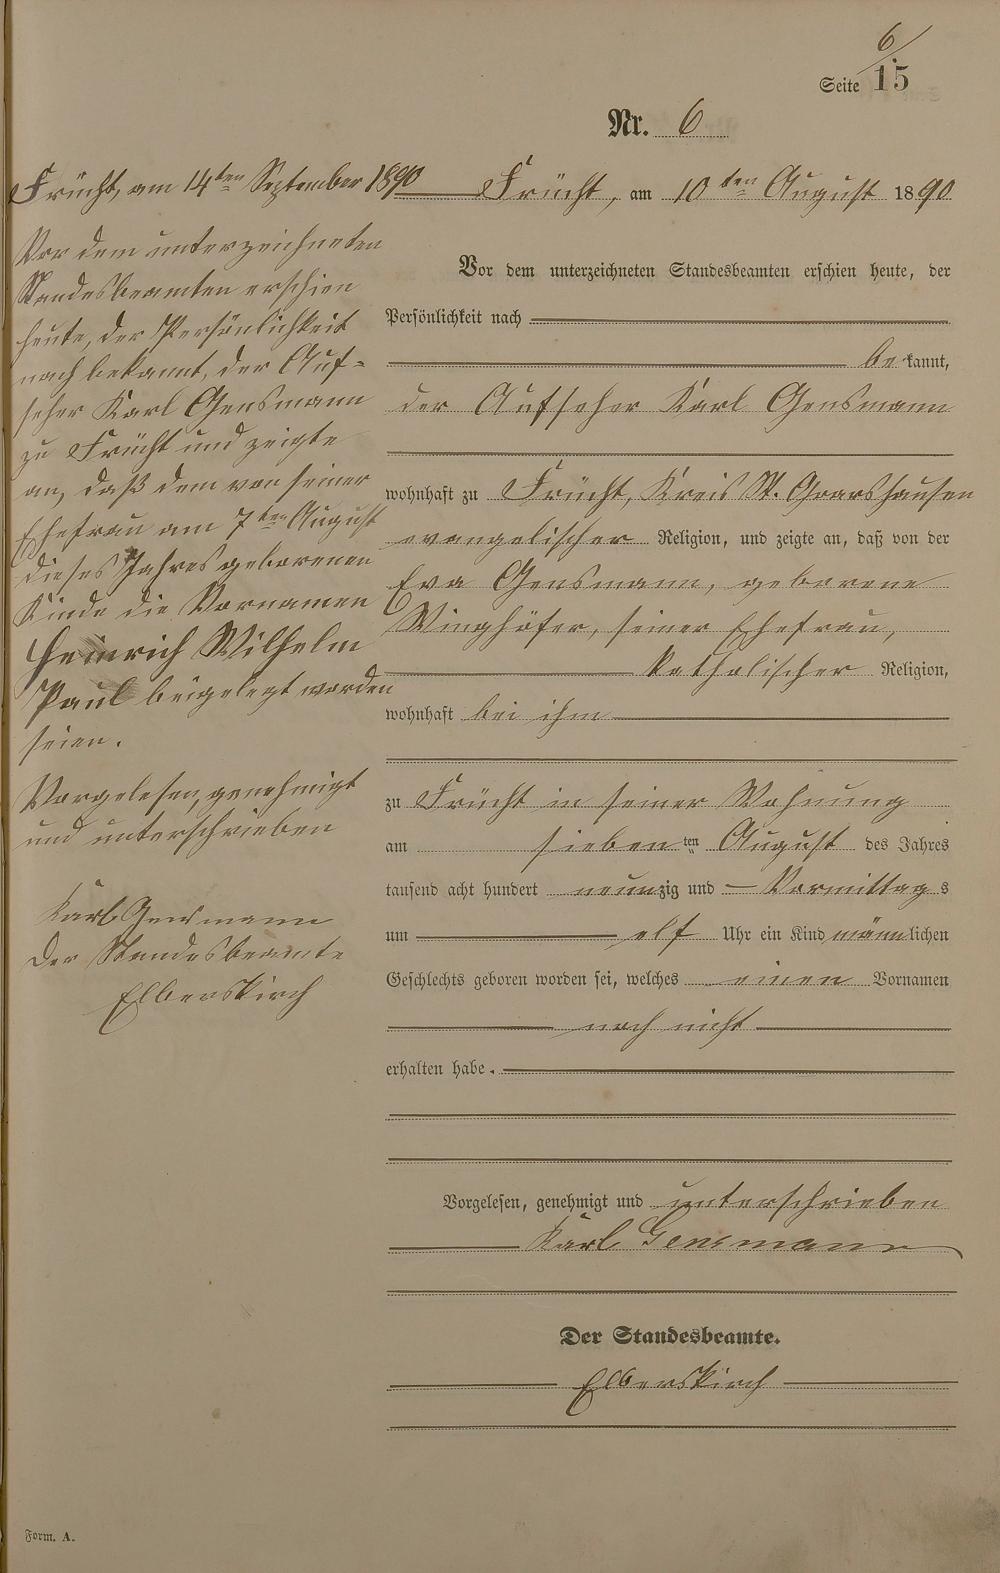 6/
Seite 15
Nr. 6
Frücht, am 10ten August 1890
Vor dem unterzeichneten Standesbeamten erschien heute, der
Persönlichkeit nach
bekannt,
der Aufseher Karl Gensmann
wohnhaft zu Frücht, Kreis St. Goarshausen
evangelischer Religion, und zeigte an, daß von der
Eva Gensmann, geborene
Winghöfer, seiner Ehefrau,
katholischer Religion,
wohnhaft bei ihm
zu Frücht in seiner Wohnung
am siebenten August des Jahres
tausend acht hundert neunzig und – Vormittags
um elf Uhr ein Kind männlichen
Geschlechts geboren worden sei, welches einen Vornamen
noch nicht
erhalten habe.
Vorgelesen, genehmigt und unterschrieben
Karl Gensmann
Der Standesbeamte.
Elberskirch
Frücht, am 14ten September 1890
Vor dem unterzeichneten
Standesbeamten erschien
heute, der Persönlichkeit
nach bekannt, der Auf-
seher Karl Gensmann
zu Frücht und zeigte
an, daß dem von seiner
Ehefrau am 7ten August
dieses Jahres geborenen
Kinde die Vornamen
Heinrich Wilhelm
Paul beigelegt worden
seien.
Vorgelesen, genehmigt
und unterschrieben
Karl Gensmann
Der Standesbeamte
Elberskirch
Form. A.